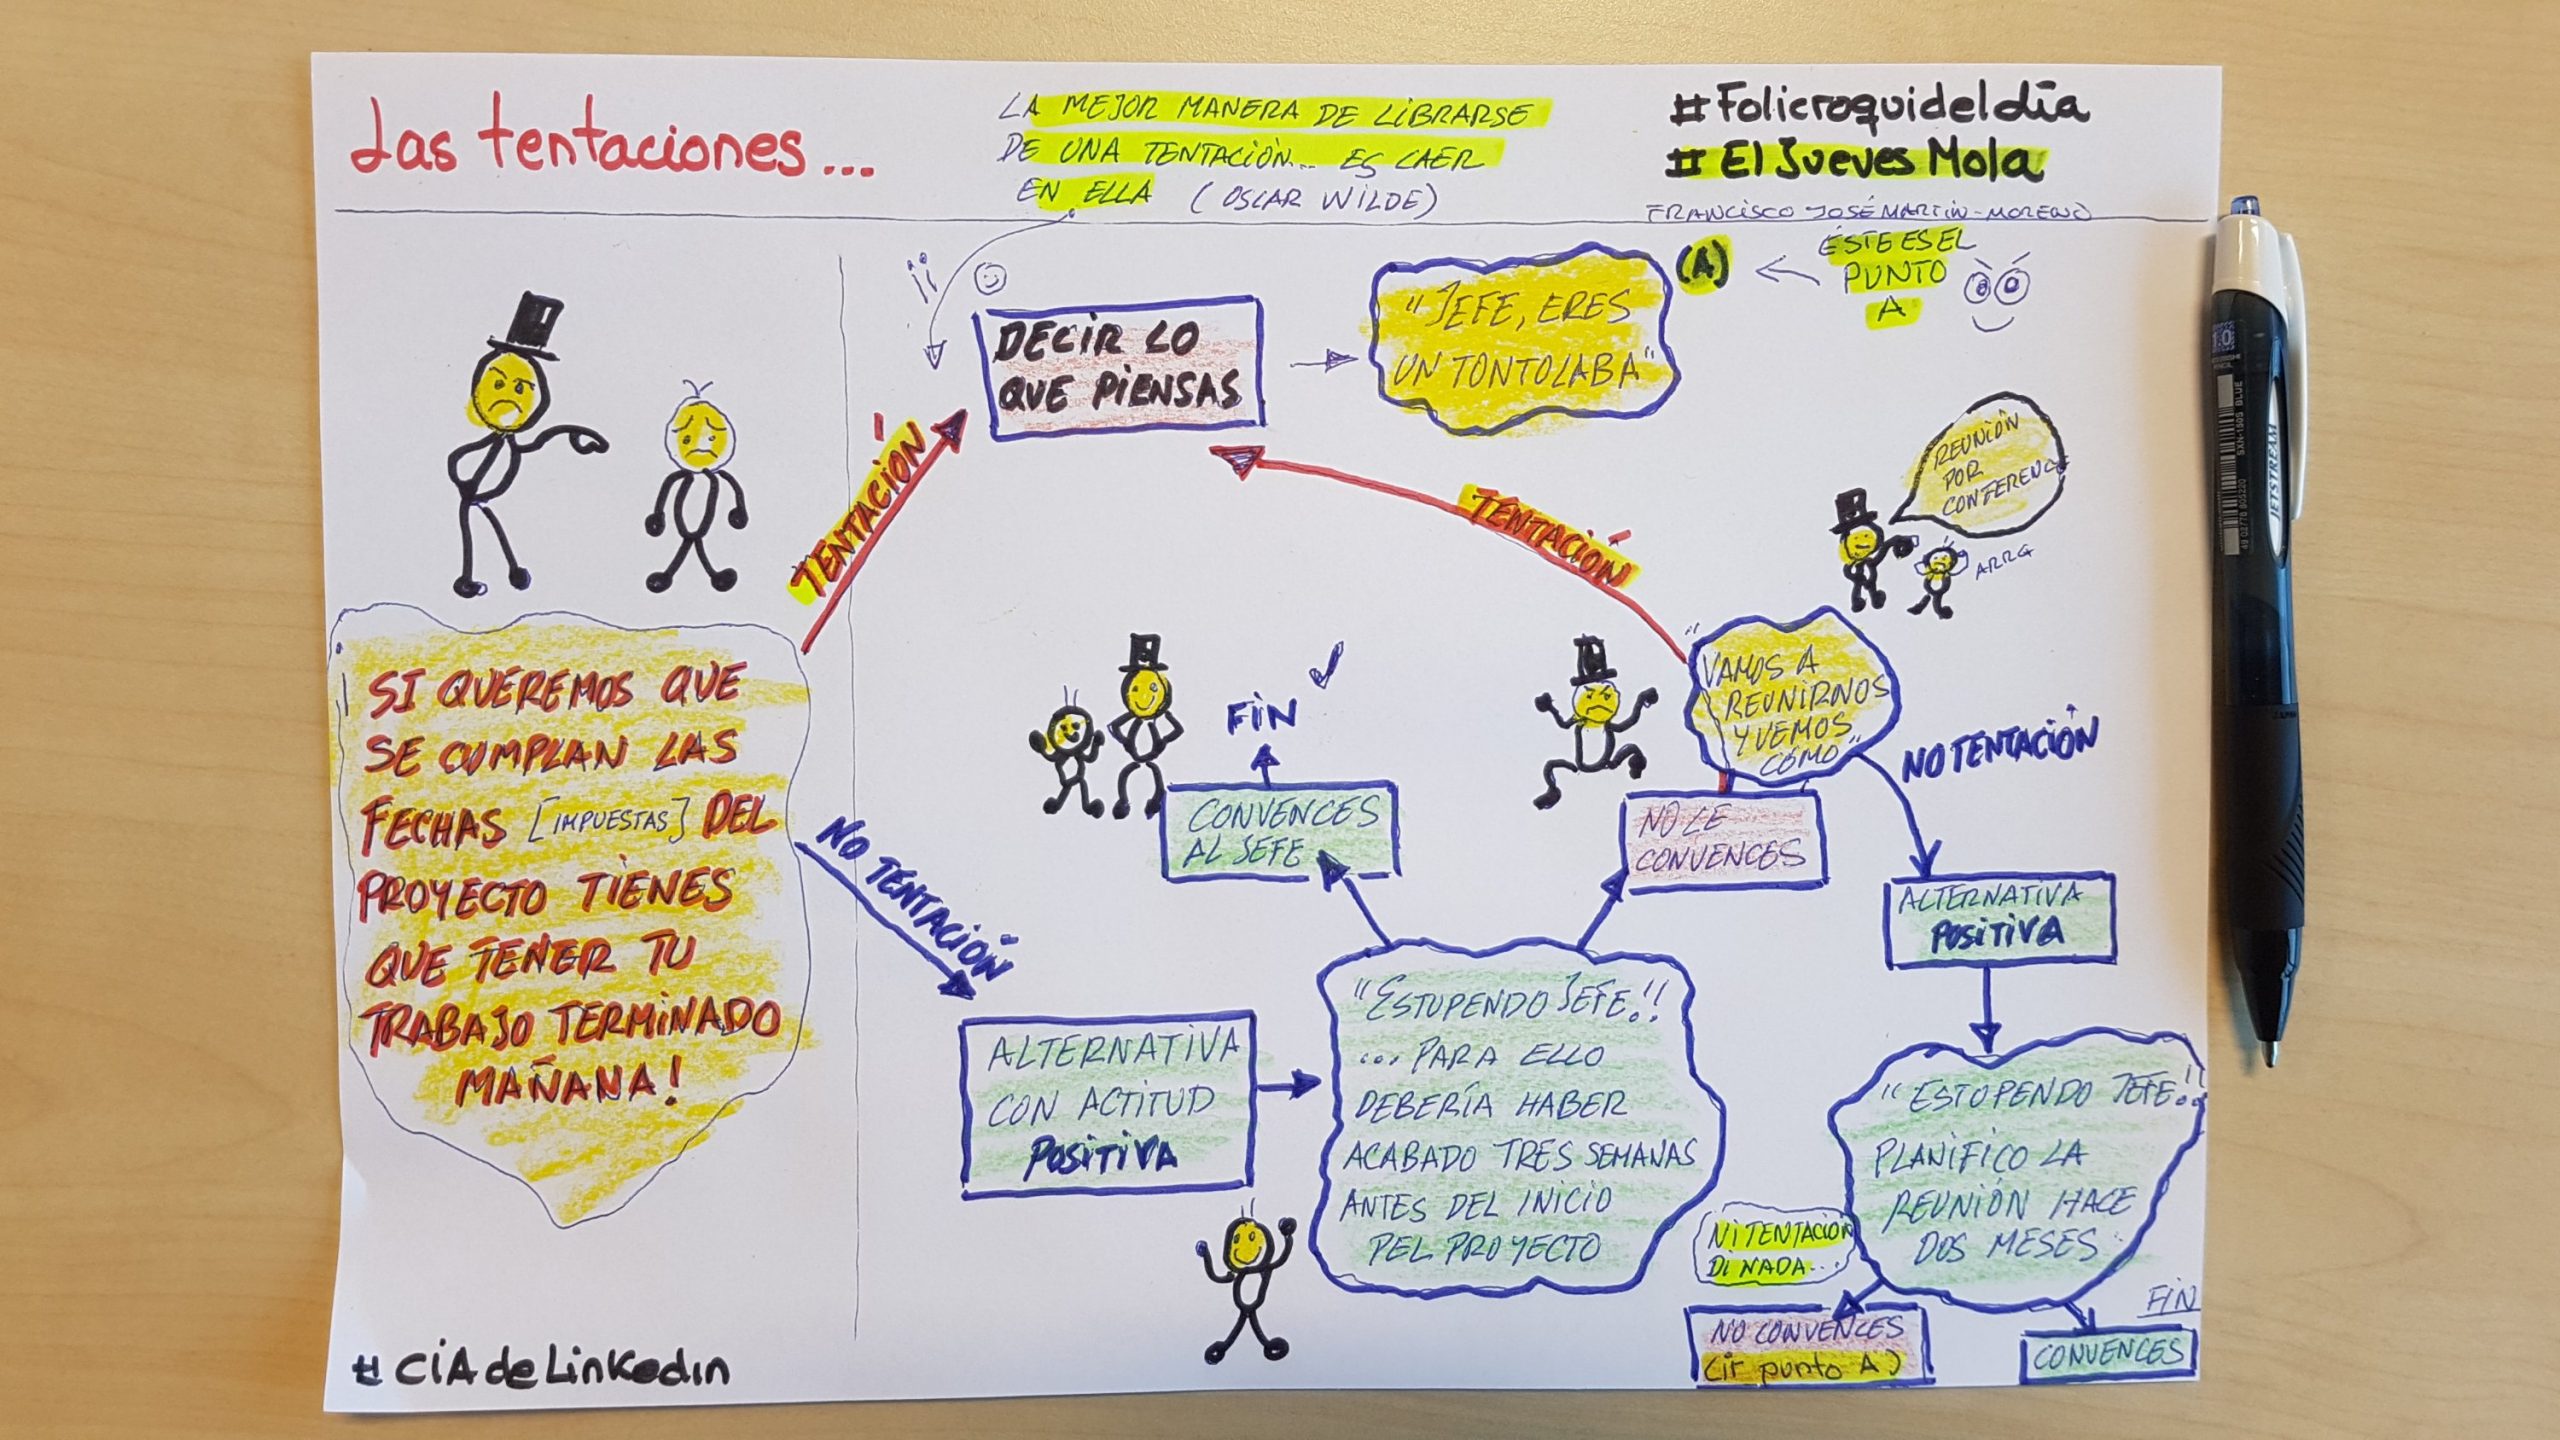 Las tentaciones...
LA MEJOR MANERA DE LIBRARSE
DE UNA TENTACIÓN... ES CAER
EN ELLA (OSCAR WILDE)
#Folicroquideldía
#ElJuevesMola
FRANCISCO JOSÉ MARTÍN-MORENO
SI QUEREMOS QUE
SE CUMPLAN LAS
FECHAS [IMPUESTAS] DEL
PROYECTO TIENES
QUE TENER TU
TRABAJO TERMINADO
MAÑANA!
#CIAdeLinkedin
TENTACIÓN
DECIR LO
QUE PIENSAS
"JEFE, ERES
UN TONTOLABA"
(A)
ÉSTE ES EL
PUNTO
A
TENTACIÓN
REUNIÓN
POR
CONFERENCE
ARRG
"VAMOS A
REUNIRNOS
Y VEMOS
CÓMO"
NO TENTACIÓN
FIN
CONVENCES
AL JEFE
NO LE
CONVENCES
ALTERNATIVA
POSITIVA
NO TENTACIÓN
ALTERNATIVA
CON ACTITUD
POSITIVA
"ESTUPENDO JEFE!!
... PARA ELLO
DEBERÍA HABER
ACABADO TRES SEMANAS
ANTES DEL INICIO
DEL PROYECTO
"ESTUPENDO JEFE!!
PLANIFICO LA
REUNIÓN HACE
DOS MESES
NI TENTACIÓN
DI NADA...
NO CONVENCES
(ir punto A)
FIN
CONVENCES
1.0
UNI
MITSUBISHI
PENCIL
SXN-150S BLUE
JETSTREAM